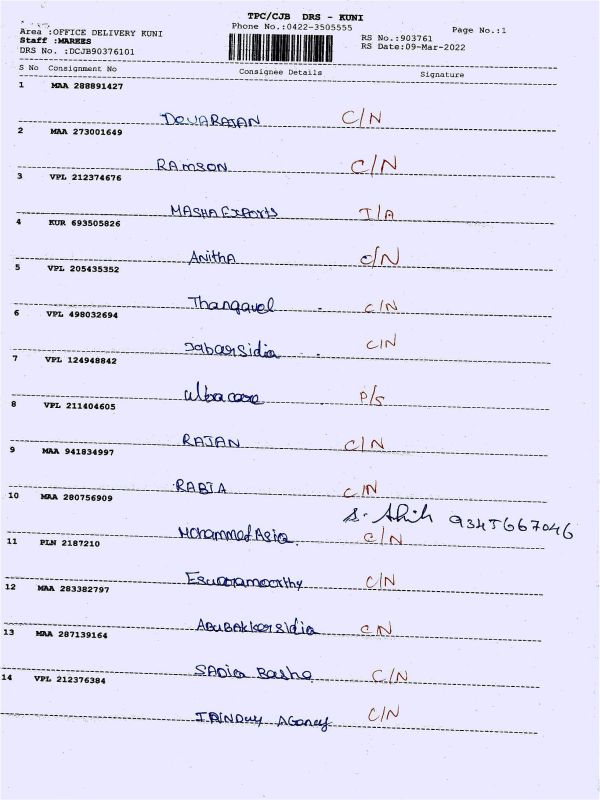 TPC/CJB DRS - KUNI
Phone No.:0422-3505555
Page No.:1
Area :OFFICE DELIVERY KUNI
Staff :MARKES
DRS No. :DCJB90376101
RS No.:903761
RS Date:09-Mar-2022
S No Consignment No Consignee Details Signature
1 MAA 288891427
DEVARAJAN C/N
2 MAA 273001649
RAMSON C/N
3 VPL 212374676
MASHA Exports I/A
4 KUR 693505826
Anitha C/N
5 VPL 205435352
Thangavel C/N
6 VPL 498032694
Jabarsidia C/N
7 VPL 124948842
P/S
8 VPL 211404605
RAJAN C/N
9 MAA 941834997
RABIA C/N
10 MAA 280756909
9345667046
Mohammed Asia C/N
11 PLN 2187210
Eswaramoorthy C/N
12 MAA 283382797
Abubakkersidia C/N
13 MAA 287139164
SADIQ Basha C/N
14 VPL 212376384
Agency C/N